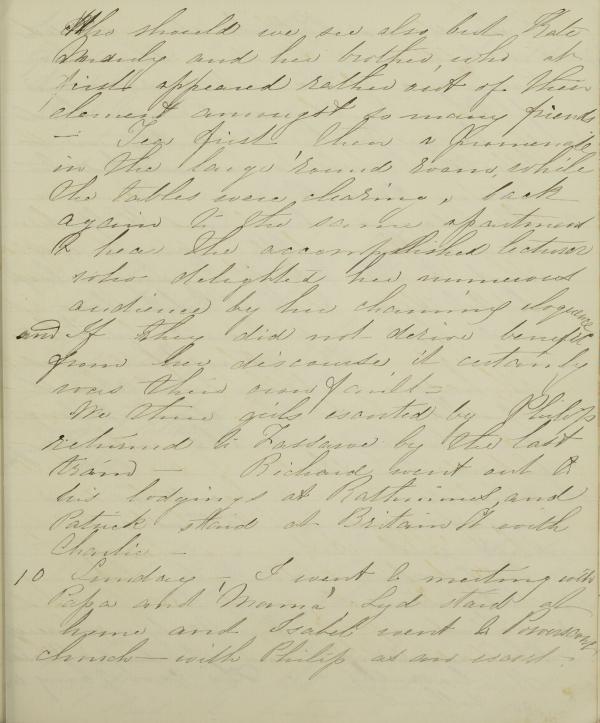 Who should we see also but Kate
and her brother, who at
first appeared rather out of their
element amongst so many friends
— Tea first then a promenade
in the large 'round room, while
the tables were clearing, back
again to the same apartment
to hear the accomplished lecturer
who delighted her numerous
audience by her charming eloquence
and If they did not derive benefit
from her discourse it certainly
was their own fault =
We three girls escorted by Philip
returned to Fassaroe by the last
tram — Richard went out to
his lodgings at Rathmines, and
Patrick staid at Britain St with
Charlie —
10 Sunday — I went to meeting with
Papa and 'Mama', Lyd staid at
home and Isabel went to Powerscourt
church — with Philip as an escort.